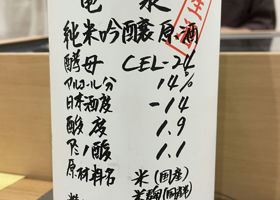 亀泉
生酒
純米吟醸原酒
酵母 CEL-24
アルコール分 14%
日本酒度 -14
酸度 1.9
アミノ酸 1.1
原材料名 米(国産)
米麹(国産米)